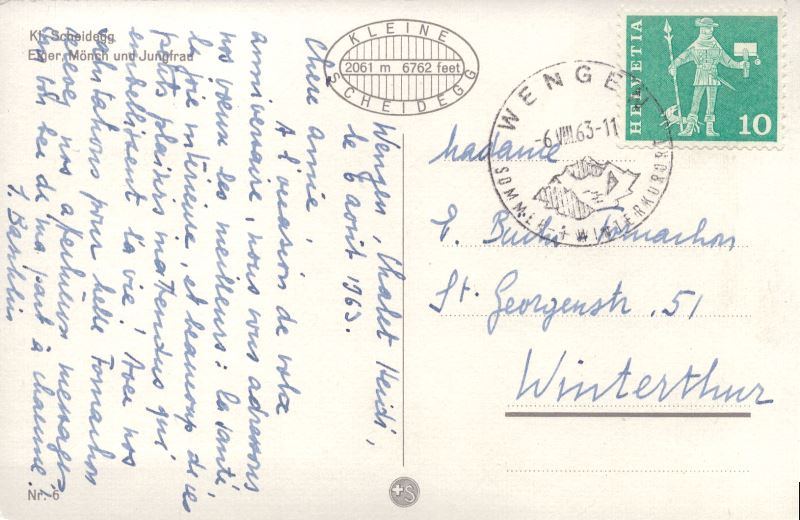 Kl. Scheidegg
Eiger, Mönch und Jungfrau
KLEINE
2061 m 6762 feet
SCHEIDEGG
WENGEN
-6.VIII.63-11
SOMMER + WINTERKURORT
HELVETIA
10
Wengen, Chalet Heidi,
le 6 août 1963.
Chère amie,
A l'occasion de votre
anniversaire, nous vous adressons
nos vœux les meilleurs: la santé,
la joie intérieure, et beaucoup de ces
petits plaisirs inattendus qui
embellissent la vie! Avec nos
salutations pour
recevez nos affectueux messages
de ma part à chacune.
Madame
St. Georgenstr. 51
Winterthur
Nr. 6
+S